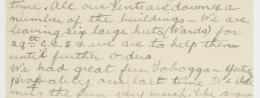 time. All our tents are down & a
number of the buildings - We are
leaving six large huts (Wards) for
29th C.C.S. & we are to help them
until further orders
We had great fun Toboggan-ing
probably our last time. We shall
miss the fun very much. The snow